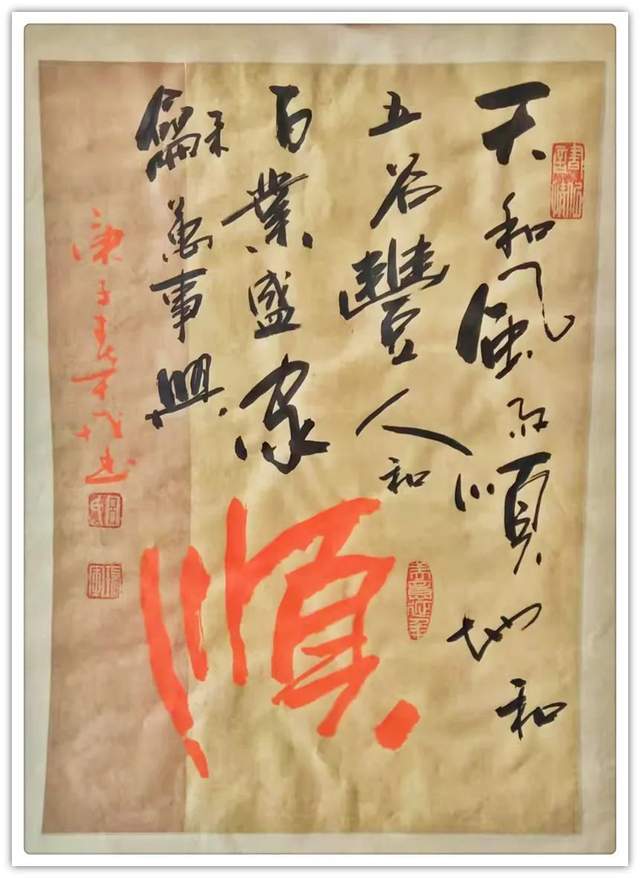 天和風雨順地和
五谷豐人和
百業盛家
龢萬事興
順
庚子春